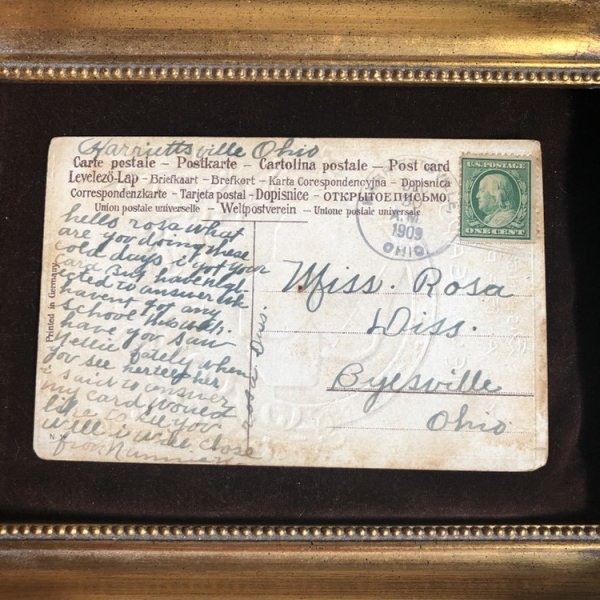 Harriettsville Ohio
Carte postale - Postkarte - Cartolina postale - Post card
Levelező-Lap - Briefkaart - Brefkort - Karta Corespondencyjna - Dopisnica
Correspondenzkarte - Tarjeta postal - Dopisnice - ОТКРЫТОЕ ПИСЬМО
Union postale universelle - Weltpostverein - Unione postale universale
U.S. POSTAGE
ONE CENT
A.M
1909
OHIO
Printed in Germany
hello rosa what
are you doing these
cold days i got your
card But have
to answer
havent got any
School
have you saw
Nellie lately when
you see her tell her
i said to answer
my card would
like to see you
well i will close
from
rosa Diss.
Miss. Rosa
Diss.
Byesville
Ohio